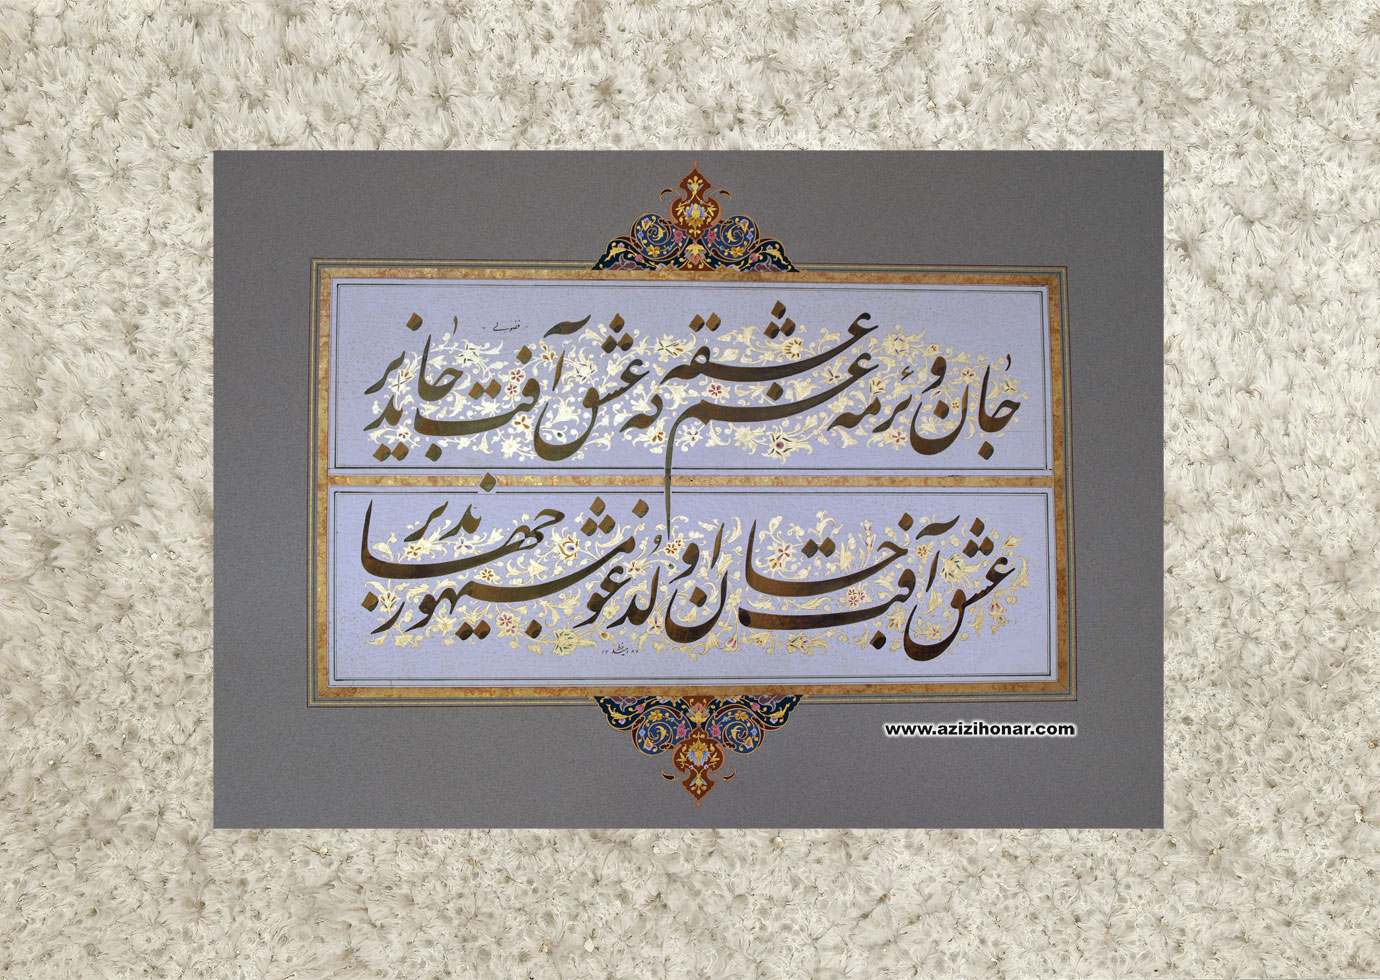 فضولی
جان وئرمه غم عشقه که عشق آفت جاندیر
عشق آفت جان اوُلدغو مشهور جهاندیر
۱۳۸۷
www.azizihonar.com